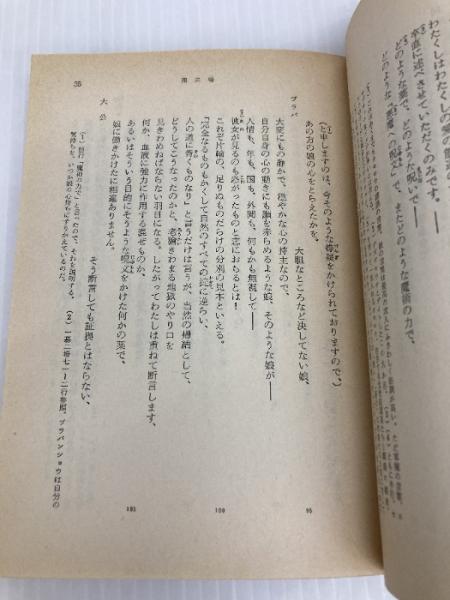 わたくしはわたくしの愛の経過を
卒直に述べさせていただくのみです。――
どのような薬で、どのような呪いで――
またどのような魔術の力で、
第三場
35
(1)
(と申しますのは、今そのような毒談をかけられておりますので、)
あの方の娘の心をとらえたかを。
ブラバ
大胆なところなど決してない娘、
大変にもの静かで、穏やかな心の持主なので、
自分自身の心の動きにも顔を赤らめるような娘、そのような娘が――
人情も、年も、国も、外聞も、何もかも無視して――
彼女が見るのも恐がったものと恋におちるとは!
これぞ片輪の、足りぬものだらけの分別の見本といえる。
『完全なるものもかくして自然のすべての掟に逆らい、
人の道に背くものなり』と言うだけは言うが、当然の帰結として、
どうしてこうなったのかと、老獪きわまる地獄のやり口を
見きわめねばならない羽目になる。したがってわたしは重ねて断言します、
何か、血液に強力に作用する混ぜものか、
あるいはそういう目的にそうような呪文をかけた何かの薬で、
娘に働きかけたに相違ありません。
大公
そう断言しても証拠とはならない、
95
100
105
(1) 前行「魔術の力で」と言ったので、それを説明する。
(2) 一幕二場七一―二行参照。ブラバンショウは自分の
気持ちを、いつか娘の心持ちにすりかえているのだ。